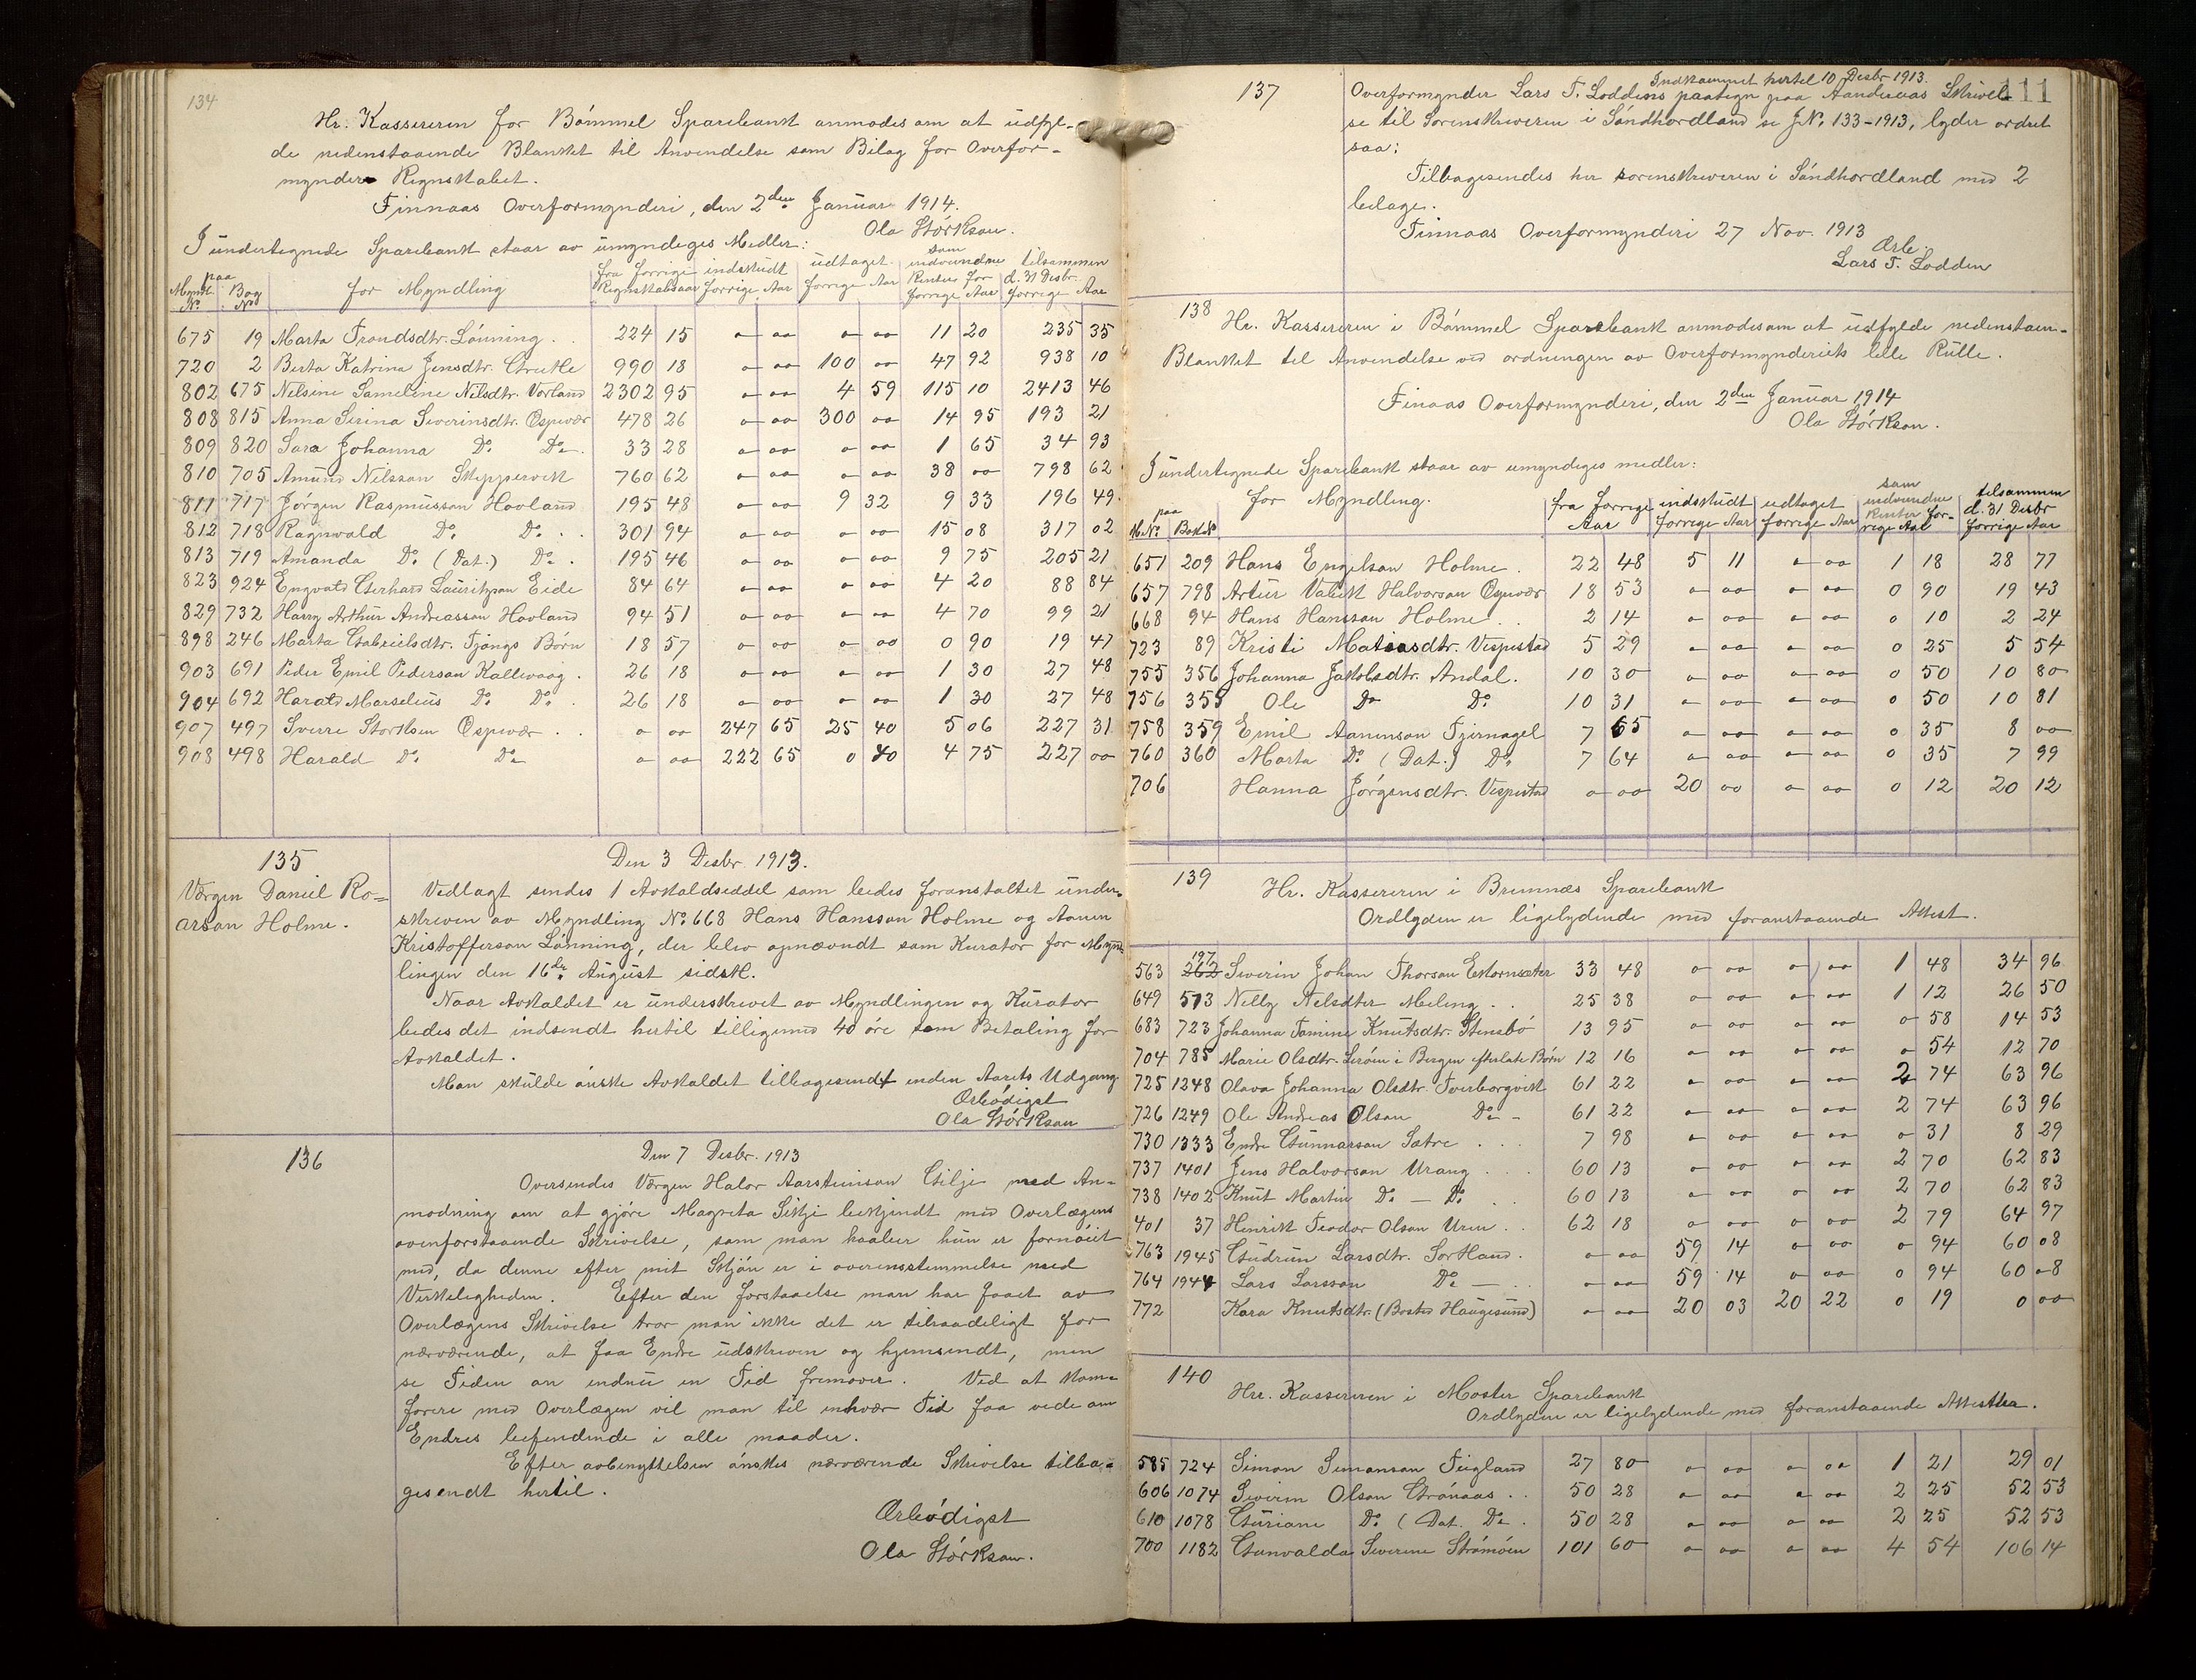 134
Hr. Kassereren for Bömmel Sparebank anmodes om at udfyl-
de nedenstaaende Blanket til Anvendelse som Bilag for Overfor-
mynder Regnskabet.
Finnaas Overformynderi, den 2den Januar 1914.
Ola Störkson.
I undertegnede Sparebank staar av umyndiges Midler:
Mynl. No. paa Bog No for Myndling fra forrige Regnskabsaar indskudt forrige Aar udtaget forrige Aar som indvundne Renter for forrige Aar tilsammen d. 31 Desbr. forrige Aar
675 19 Marta Trondsdtr. Lönning . 224 15 o oo o oo 11 20 235 35
720 2 Berta Katrina Jensdtr. 990 18 o oo 100 oo 47 92 938 10
802 675 Nilsine Sameline Nilsdtr. Vorland 2302 95 o oo 4 59 115 10 2413 46
808 815 Anna Serina Severinsdtr. Espevær 478 26 o oo 300 oo 14 95 193 21
809 820 Sara Johanna Do Do 33 28 o oo o oo 1 65 34 93
810 705 Amund Nilsson Skippervik 760 62 o oo o oo 38 oo 798 62
811 717 Jørgen Rasmusson Hovland 195 48 o oo 9 32 9 33 196 49
812 718 Ragnvald Do Do . . 301 94 o oo o oo 15 08 317 02
813 719 Amanda Do (Dat.) Do . 195 46 o oo o oo 9 75 205 21
823 924 Engvald Gerhard Lauritzson Eide 84 64 o oo o oo 4 20 88 84
829 732 Harry Arthur Andreasson Hovland 94 51 o oo o oo 4 70 99 21
898 246 Marta Gabrielsdtr. Tjongs Börn 18 57 o oo o oo 0 90 19 47
903 691 Peder Emil Pederson Kallevaag . 26 18 o oo o oo 1 30 27 48
904 692 Harald Marselius Do Do . 26 18 o oo o oo 1 30 27 48
907 497 Sverre Storksen Espevær . . o oo 247 65 25 40 5 06 227 31
908 498 Harald Do Do o oo 222 65 0 40 4 75 227 oo
135
Værgen Daniel Ro-
arson Holme.
Den 3 Desbr. 1913.
Vedlagt sendes 1 Avkaldseddel som bedes foranstaltet under-
skreven av Myndling No 668 Hans Hansson Holme og Aanen
Kristofferson Lönning, der blev opnævndt som Kurator for Mynd-
lingen den 16de August sidstl.
Naar Avkaldet er underskrevet av Myndlingen og Kurator
bedes det indsendt hertil tilligemed 40 öre som Betaling for
Avkaldet.
Man skulde önske Avkaldet tilbagesendt inden Aarets Udgang.
Ærbödigst
Ola Störkson
136
Den 7 Desbr. 1913
Oversendes Værgen Halvor Aarsteinson Gilje med An-
modning om at gjöre Magreta bekjendt med Overlægens
ovenforstaaende Skrivelse, som man haaber hun er fornöiet
med, da denne efter mit Skjön er i overensstemmelse med
Virkeligheden. Efter den forstaaelse man har faaet av
Overlægens Skrivelse tror man ikke det er tilraadeligt for
nærværende, at faa Endre udskreven og hjemsendt, men
se Tiden an endnu en Tid fremover. Ved at kom-
ferere med Overlægen vil man til enhver Tid faa vede om
Endres befindende i alle maader.
Efter avbenyttelsen önskes nærværende Skrivelse tilba-
gesendt hertil.
Ærbödigst
Ola Störkson.
111
137
Indkommet hertil 10 Desbr 1913.
Overformynder Lars T. Loddens paategn paa Aanderaas Skrivel-
se til Sorenskriveren i Söndhordland se J No. 133-1913, lyder ordret
saa:
Tilbagesendes hr sorenskriveren i Söndhordland med 2
bilage.
Finnaas Overformynderi 27 Nov. 1913
Ærb.
Lars T. Lodden
138
Hr. Kassereren i Bömmel Sparebank anmodes om at udfylde nedenstaaen-
Blanket til Anvendelse ved ordningen av Overformynderiets lille Rulle.
Finaas Overformynderi, den 2den Januar 1914
Ola Störkson.
I undertegnede Sparebank staar av umyndiges midler:
M.No. paa Bok No for Myndling. fra forrige Aar indskudt forrige Aar udtaget forrige Aar som indvundne Renter for- rige Aar tilsammen d. 31 Desbr forrige Aar
651 209 Hans Engelson Holme . 22 48 5 11 o oo 1 18 28 77
657 798 Artur Valnik Halvorson Espevær 18 53 o oo o oo 0 90 19 43
668 94 Hans Hansson Holme . . 2 14 o oo o oo 0 10 2 24
723 89 Kristi Matiasdtr. Vespestad 5 29 o oo o oo 0 25 5 54
755 356 Johanna Jakobsdtr. Andal. 10 30 o oo o oo 0 50 10 80
756 355 Ole Do Do 10 31 o oo o oo 0 50 10 81
758 359 Emil Aanenson Tjernagel 7 65 o oo o oo 0 35 8 oo
760 360 Marta Do (Dat.) Do 7 64 o oo o oo 0 35 7 99
706 Hanna Jörgensdtr. Vespestad o oo 20 oo o oo 0 12 20 12
139
Hr. Kassereren i Bremnæs Sparebank
Ordlyden er ligelydende med foranstaaende Attest.
563 197 262 Severin Johan Thorson Ekornsæter 33 48 o oo o oo 1 48 34 96
649 573 Nelly Nilsdter Meling . . 25 38 o oo o oo 1 12 26 50
683 723 Johanna Tamine Knutsdtr. Stensbö 13 95 o oo o oo o 58 14 53
704 785 Marie Olsdtr. Leröen i Bergen efterlate Börn 12 16 o oo o oo o 54 12 70
725 1248 Olava Johanna Olsdtr. Tverborgvik 61 22 o oo o oo 2 74 63 96
726 1249 Ole Andreas Olson Do 61 22 o oo o oo 2 74 63 96
730 1333 Endre Gunnarson Sætre . . . 7 98 o oo o oo o 31 8 29
737 1401 Jens Halvorson Urang . . . 60 13 o oo o oo 2 70 62 83
738 1402 Knut Martin Do — Do . 60 13 o oo o oo 2 70 62 83
401 37 Henrik Teodor Olson Uren . . 62 18 o oo o oo 2 79 64 97
763 1945 Gudrun Larsdtr. Sortland . o oo 59 14 o oo o 94 60 08
764 1944 Lars Larsson Do — . . o oo 59 14 o oo 0 94 60 08
772 Kara Knutsdtr. (Bosted Haugesund) o oo 20 03 20 22 0 19 0 oo
140
Hrr. Kassereren i Moster Sparebank
Ordlyden er ligelydende med foranstaaende Attester.
585 724 Simon Simonson Fugland 27 80 o oo o oo 1 21 29 01
606 1074 Severin Olson Grönaas . . 50 28 o oo o oo 2 25 52 53
610 1078 Guriane Do (Dat. Do . 50 28 o oo o oo 2 25 52 53
700 1182 Gunvalda Severine Strömöen 101 60 o oo o oo 4 54 106 14